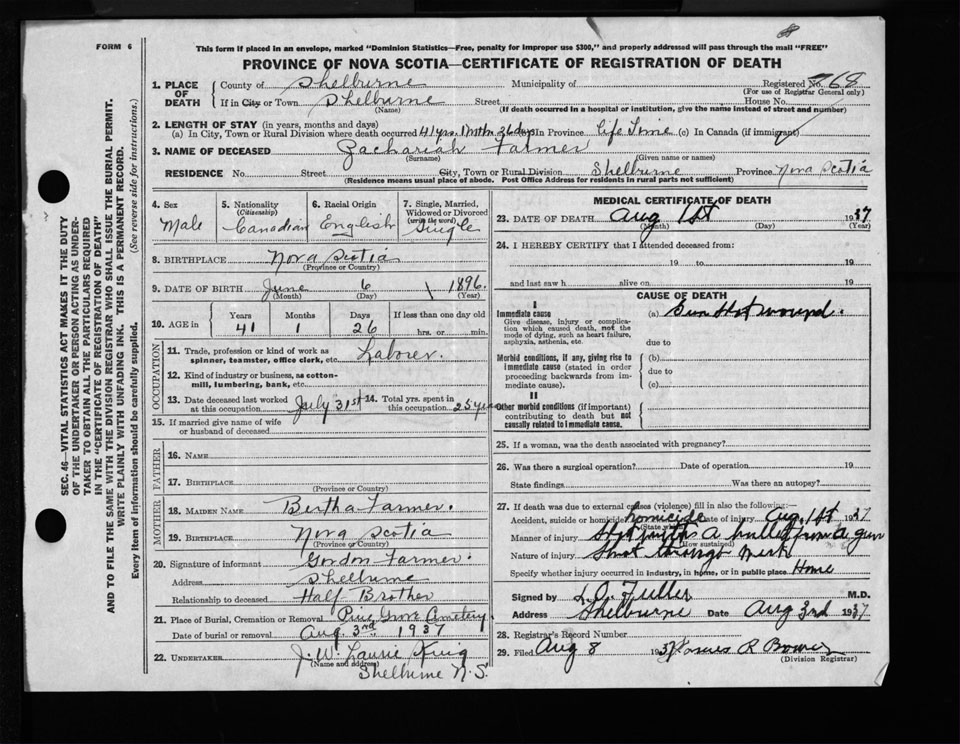 FORM 6
This form if placed in an envelope, marked "Dominion Statistics—Free, penalty for improper use $300," and properly addressed will pass through the mail "FREE"
PROVINCE OF NOVA SCOTIA—CERTIFICATE OF REGISTRATION OF DEATH
SEC. 46—VITAL STATISTICS ACT MAKES IT THE DUTY
OF THE UNDERTAKER OR PERSON ACTING AS UNDER-
TAKER TO OBTAIN ALL THE PARTICULARS REQUIRED
IN THE "CERTIFICATE OF REGISTRATION OF DEATH"
AND TO FILE THE SAME WITH THE DIVISION REGISTRAR WHO SHALL ISSUE THE BURIAL PERMIT.
WRITE PLAINLY WITH UNFADING INK. THIS IS A PERMANENT RECORD.
Every item of information should be carefully supplied. (See reverse side for instructions.)
1. PLACE OF DEATH
County of Shelburne Municipality of Registered No. 768
(For use of Registrar General only)
If in City or Town Shelburne Street House No.
(Name) (If death occurred in a hospital or institution, give the name instead of street and number)
2. LENGTH OF STAY (in years, months and days)
(a) In City, Town or Rural Division where death occurred 41 yrs. 1 mth. 26 dys In Province Life Time (c) In Canada (if immigrant)
3. NAME OF DECEASED Zachariah Farmer
(Surname) (Given name or names)
RESIDENCE No. Street City, Town or Rural Division Shelburne Province Nova Scotia
(Residence means usual place of abode. Post Office Address for residents in rural parts not sufficient)
4. Sex
Male
5. Nationality
(Citizenship)
Canadian
6. Racial Origin
English
7. Single, Married, Widowed or Divorced
(write the word)
Single
8. BIRTHPLACE Nova Scotia
(Province or Country)
9. DATE OF BIRTH June 6 1896
(Month) (Day) (Year)
10. AGE in
Years Months Days If less than one day old
41 1 26 hrs. or min.
OCCUPATION
11. Trade, profession or kind of work as
spinner, teamster, office clerk, etc. Laborer.
12. Kind of industry or business, as cotton-
mill, lumbering, bank, etc.
13. Date deceased last worked
at this occupation July 31st
14. Total yrs. spent in
this occupation 25 years
15. If married give name of wife
or husband of deceased
FATHER
16. NAME
17. BIRTHPLACE
(Province or Country)
MOTHER
18. MAIDEN NAME Bertha Farmer.
19. BIRTHPLACE Nova Scotia
(Province or Country)
20. Signature of informant Gordon Farmer.
Address Shelburne
Relationship to deceased Half Brother
21. Place of Burial, Cremation or Removal Pine Grove Cemetery.
Date of burial or removal Aug. 3rd 1937
22. UNDERTAKER J. W. Laurie King
(Name and address)
Shelburne N.S.
MEDICAL CERTIFICATE OF DEATH
23. DATE OF DEATH Aug 1st 1937
(Month) (Day) (Year)
24. I HEREBY CERTIFY that I attended deceased from:
19 to 19
and last saw h alive on 19
CAUSE OF DEATH
I
Immediate cause
Give disease, injury or complica-
tion which caused death, not the
mode of dying, such as heart failure,
asphyxia, asthenia, etc.
(a) Gun shot wound.
due to
Morbid conditions, if any, giving rise to
immediate cause (stated in order
proceeding backwards from im-
mediate cause).
(b)
due to
(c)
II
Other morbid conditions (if important)
contributing to death but not
causally related to immediate cause.
25. If a woman, was the death associated with pregnancy?
26. Was there a surgical operation? Date of operation 19
State findings Was there an autopsy?
27. If death was due to external causes (violence) fill in also the following:—
Accident, suicide or homicide homicide Date of injury Aug. 1st 1937
(State which)
Manner of injury a bullet from a gun
(How sustained)
Nature of injury Shot through neck
Specify whether injury occurred in industry, in home, or in public place Home
Signed by L.O. Fuller M.D.
Address Shelburne Date Aug 3rd 1937
28. Registrar's Record Number
29. Filed Aug 8 1937 R Bower
(Division Registrar)